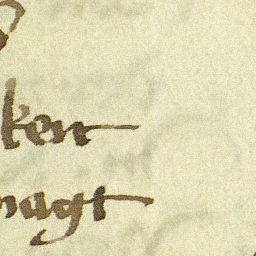 ken
magt